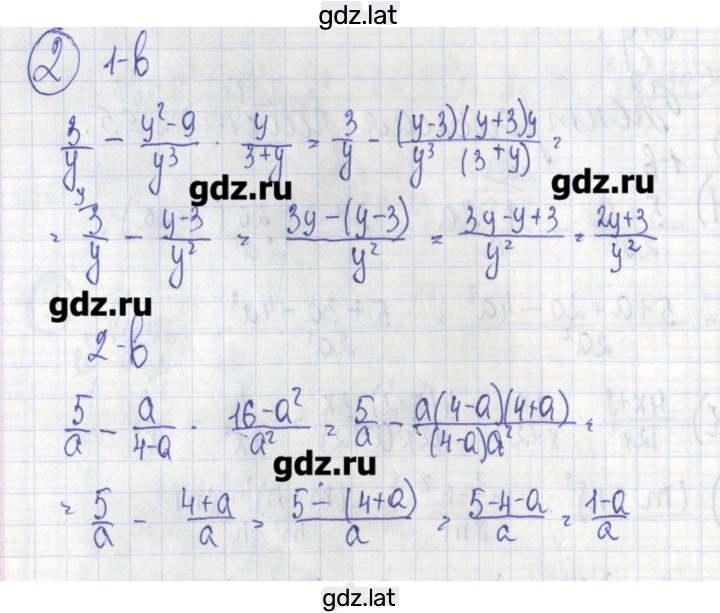 gdz.lat
2 1-в
3/y - (y²-9)/y³ · y/(3+y) = 3/y - (y-3)(y+3)y/(y³ (3+y)) =
gdz.ru gdz.ru
= 3/y - (y-3)/y² = (3y-(y-3))/y² = (3y-y+3)/y² = (2y+3)/y²
gdz.ru
2-в
5/a - a/(4-a) · (16-a²)/a² = 5/a - a(4-a)(4+a)/((4-a)a²) =
gdz.ru
= 5/a - (4+a)/a = (5-(4+a))/a = (5-4-a)/a = (1-a)/a
gdz.lat